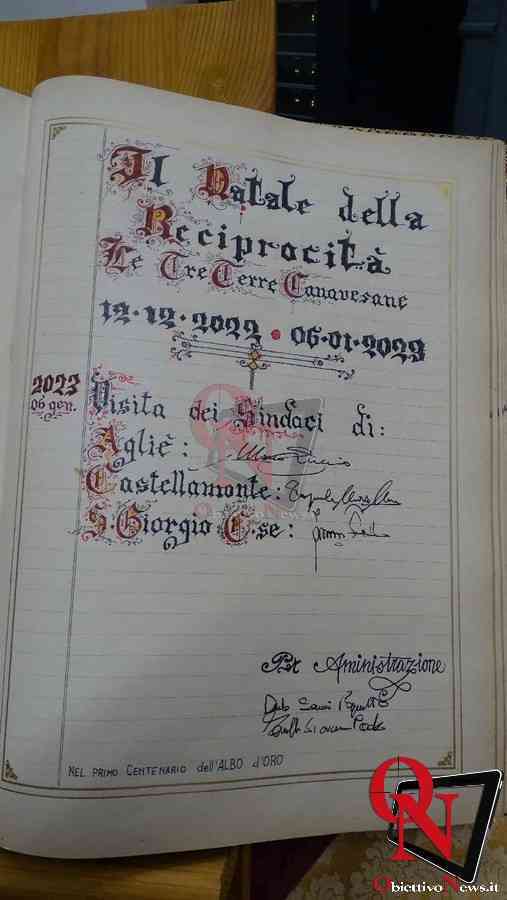 Il Natale della
Reciprocità
Le Tre Terre Canavesane
12·12·2022 • 06·01·2023
2023
06 gen.
Visita dei Sindaci di:
Agliè:
Castellamonte:
S. Giorgio C.se:
Per Aministrazione
NEL PRIMO CENTENARIO dell'ALBO d'ORO
ON
ObiettivoNews.it